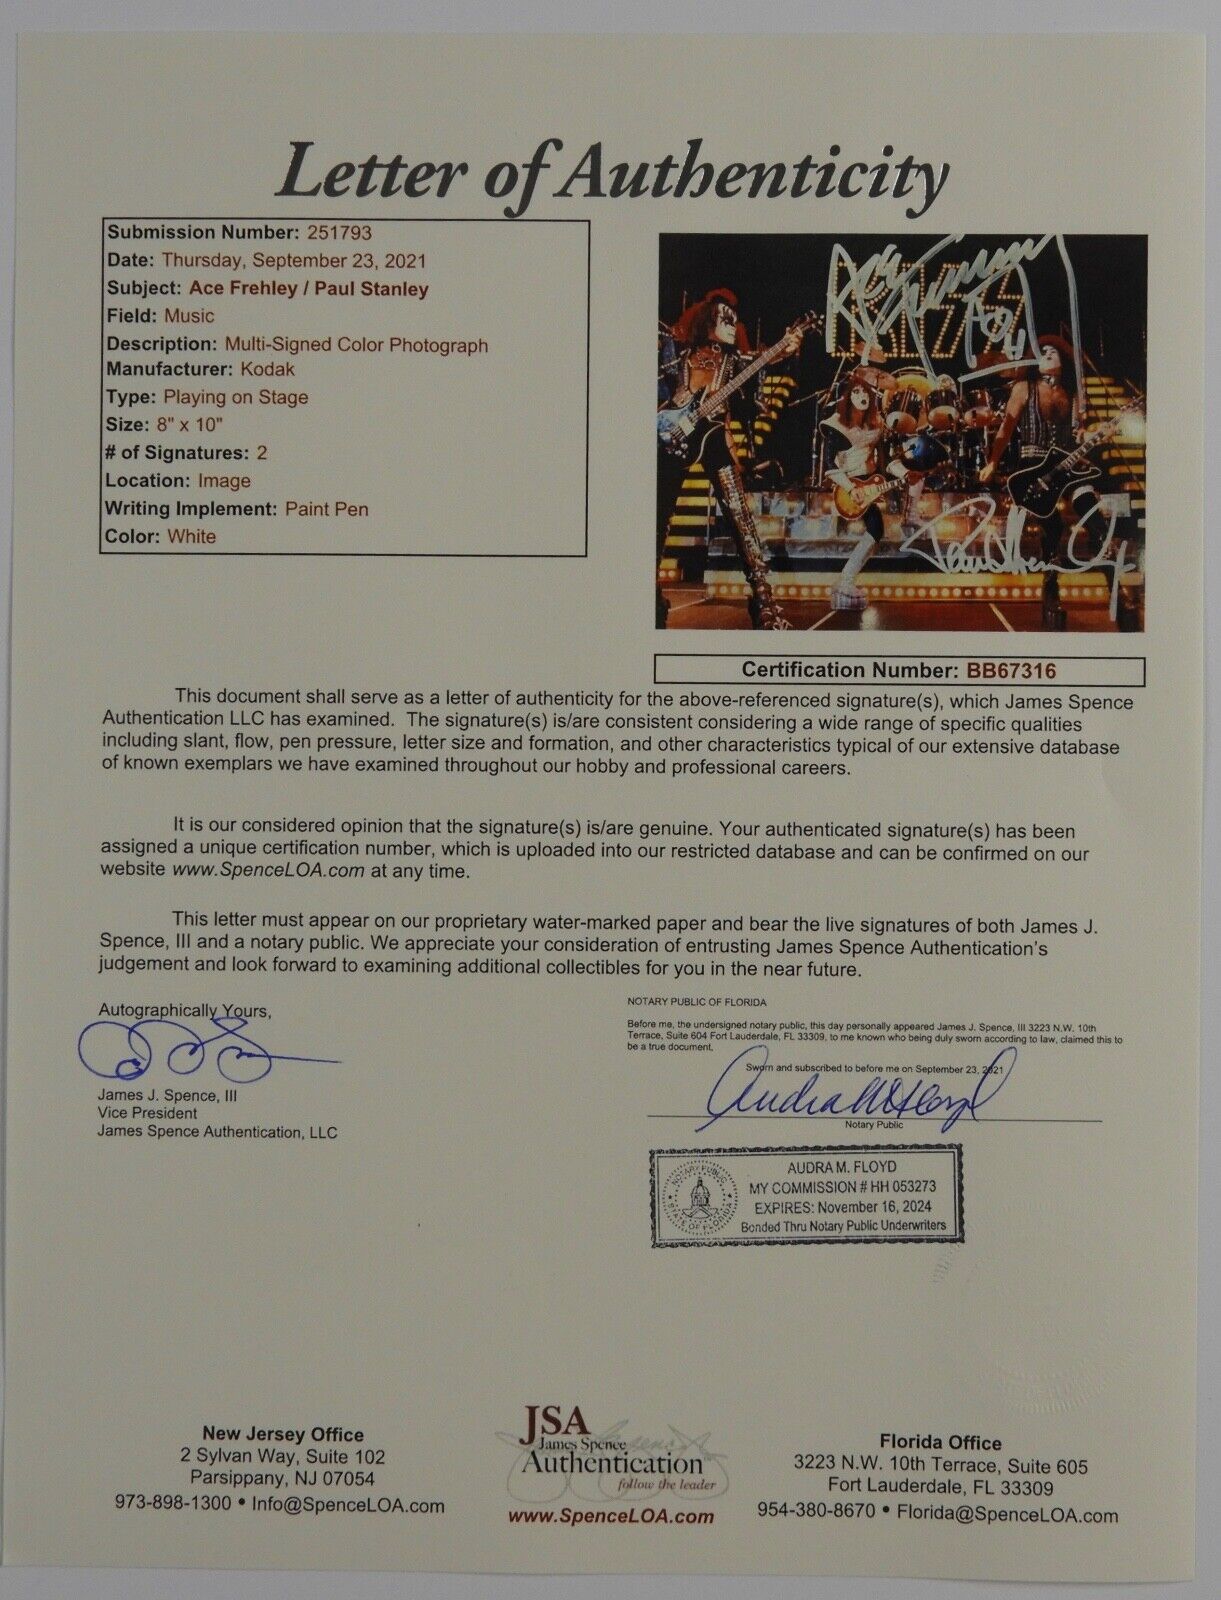 Letter of Authenticity
Submission Number: 251793
Date: Thursday, September 23, 2021
Subject: Ace Frehley / Paul Stanley
Field: Music
Description: Multi-Signed Color Photograph
Manufacturer: Kodak
Type: Playing on Stage
Size: 8" x 10"
# of Signatures: 2
Location: Image
Writing Implement: Paint Pen
Color: White
KISS
Certification Number: BB67316
This document shall serve as a letter of authenticity for the above-referenced signature(s), which James Spence
Authentication LLC has examined. The signature(s) is/are consistent considering a wide range of specific qualities
including slant, flow, pen pressure, letter size and formation, and other characteristics typical of our extensive database
of known exemplars we have examined throughout our hobby and professional careers.
It is our considered opinion that the signature(s) is/are genuine. Your authenticated signature(s) has been
assigned a unique certification number, which is uploaded into our restricted database and can be confirmed on our
website www.SpenceLOA.com at any time.
This letter must appear on our proprietary water-marked paper and bear the live signatures of both James J.
Spence, III and a notary public. We appreciate your consideration of entrusting James Spence Authentication's
judgement and look forward to examining additional collectibles for you in the near future.
Autographically Yours,
James J. Spence, III
Vice President
James Spence Authentication, LLC
NOTARY PUBLIC OF FLORIDA
Before me, the undersigned notary public, this day personally appeared James J. Spence, III 3223 N.W. 10th
Terrace, Suite 604 Fort Lauderdale, FL 33309, to me known who being duly sworn according to law, claimed this to
be a true document.
Sworn and subscribed to before me on September 23, 2021
Audra M Floyd
Notary Public
NOTARY PUBLIC
STATE OF FLORIDA
AUDRA M. FLOYD
MY COMMISSION # HH 053273
EXPIRES: November 16, 2024
Bonded Thru Notary Public Underwriters
New Jersey Office
2 Sylvan Way, Suite 102
Parsippany, NJ 07054
973-898-1300 • Info@SpenceLOA.com
JSA
James Spence
Authentication
follow the leader
www.SpenceLOA.com
Florida Office
3223 N.W. 10th Terrace, Suite 605
Fort Lauderdale, FL 33309
954-380-8670 • Florida@SpenceLOA.com